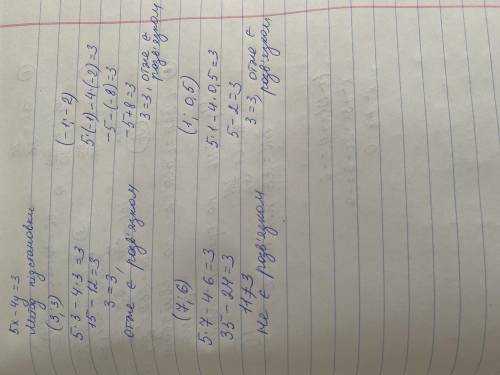 5x-4y=3
Метод підстановки
(3; 3)
5·3-4·3=3
15-12=3
3=3,
отже є розв'язком
(-1; -2)
5·(-1)-4·(-2)=3
-5-(-8)=3
-5+8=3
3=3, отже є
розв'язком
(7; 6)
5·7-4·6=3
35-24=3
11≠3
не є розв'язком
(1; 0,5)
5·1-4·0,5=3
5-2=3
3=3, отже є
розв'язком